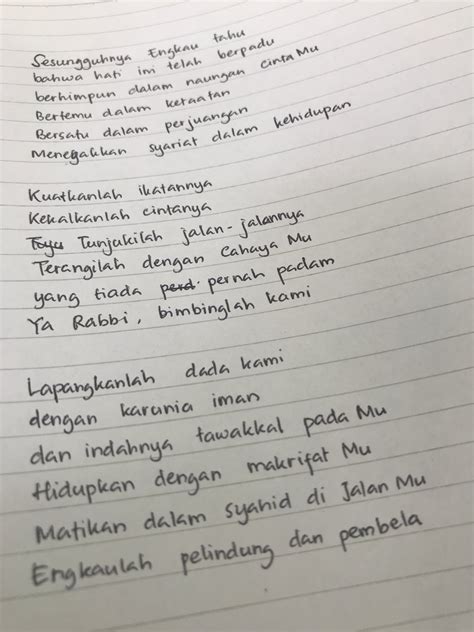 Sesungguhnya Engkau tahu
bahwa hati ini telah berpadu
berhimpun dalam naungan cintaMu
Bertemu dalam ketaatan
Bersatu dalam perjuangan
Menegakkan syariat dalam kehidupan
Kuatkanlah ikatannya
Kekalkanlah cintanya
Tunjukilah jalan-jalannya
Terangilah dengan cahaya Mu
yang tiada pernah padam
Ya Rabbi, bimbinglah kami
Lapangkanlah dada kami
dengan karunia iman
dan indahnya tawakkal pada Mu
Hidupkan dengan makrifat Mu
Matikan dalam syahid di Jalan Mu
Engkaulah pelindung dan pembela